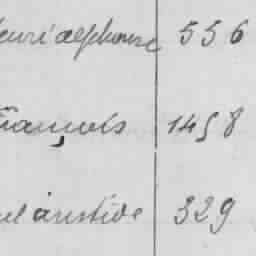 henri alphonse 556
françois 1458
ul aristide 329